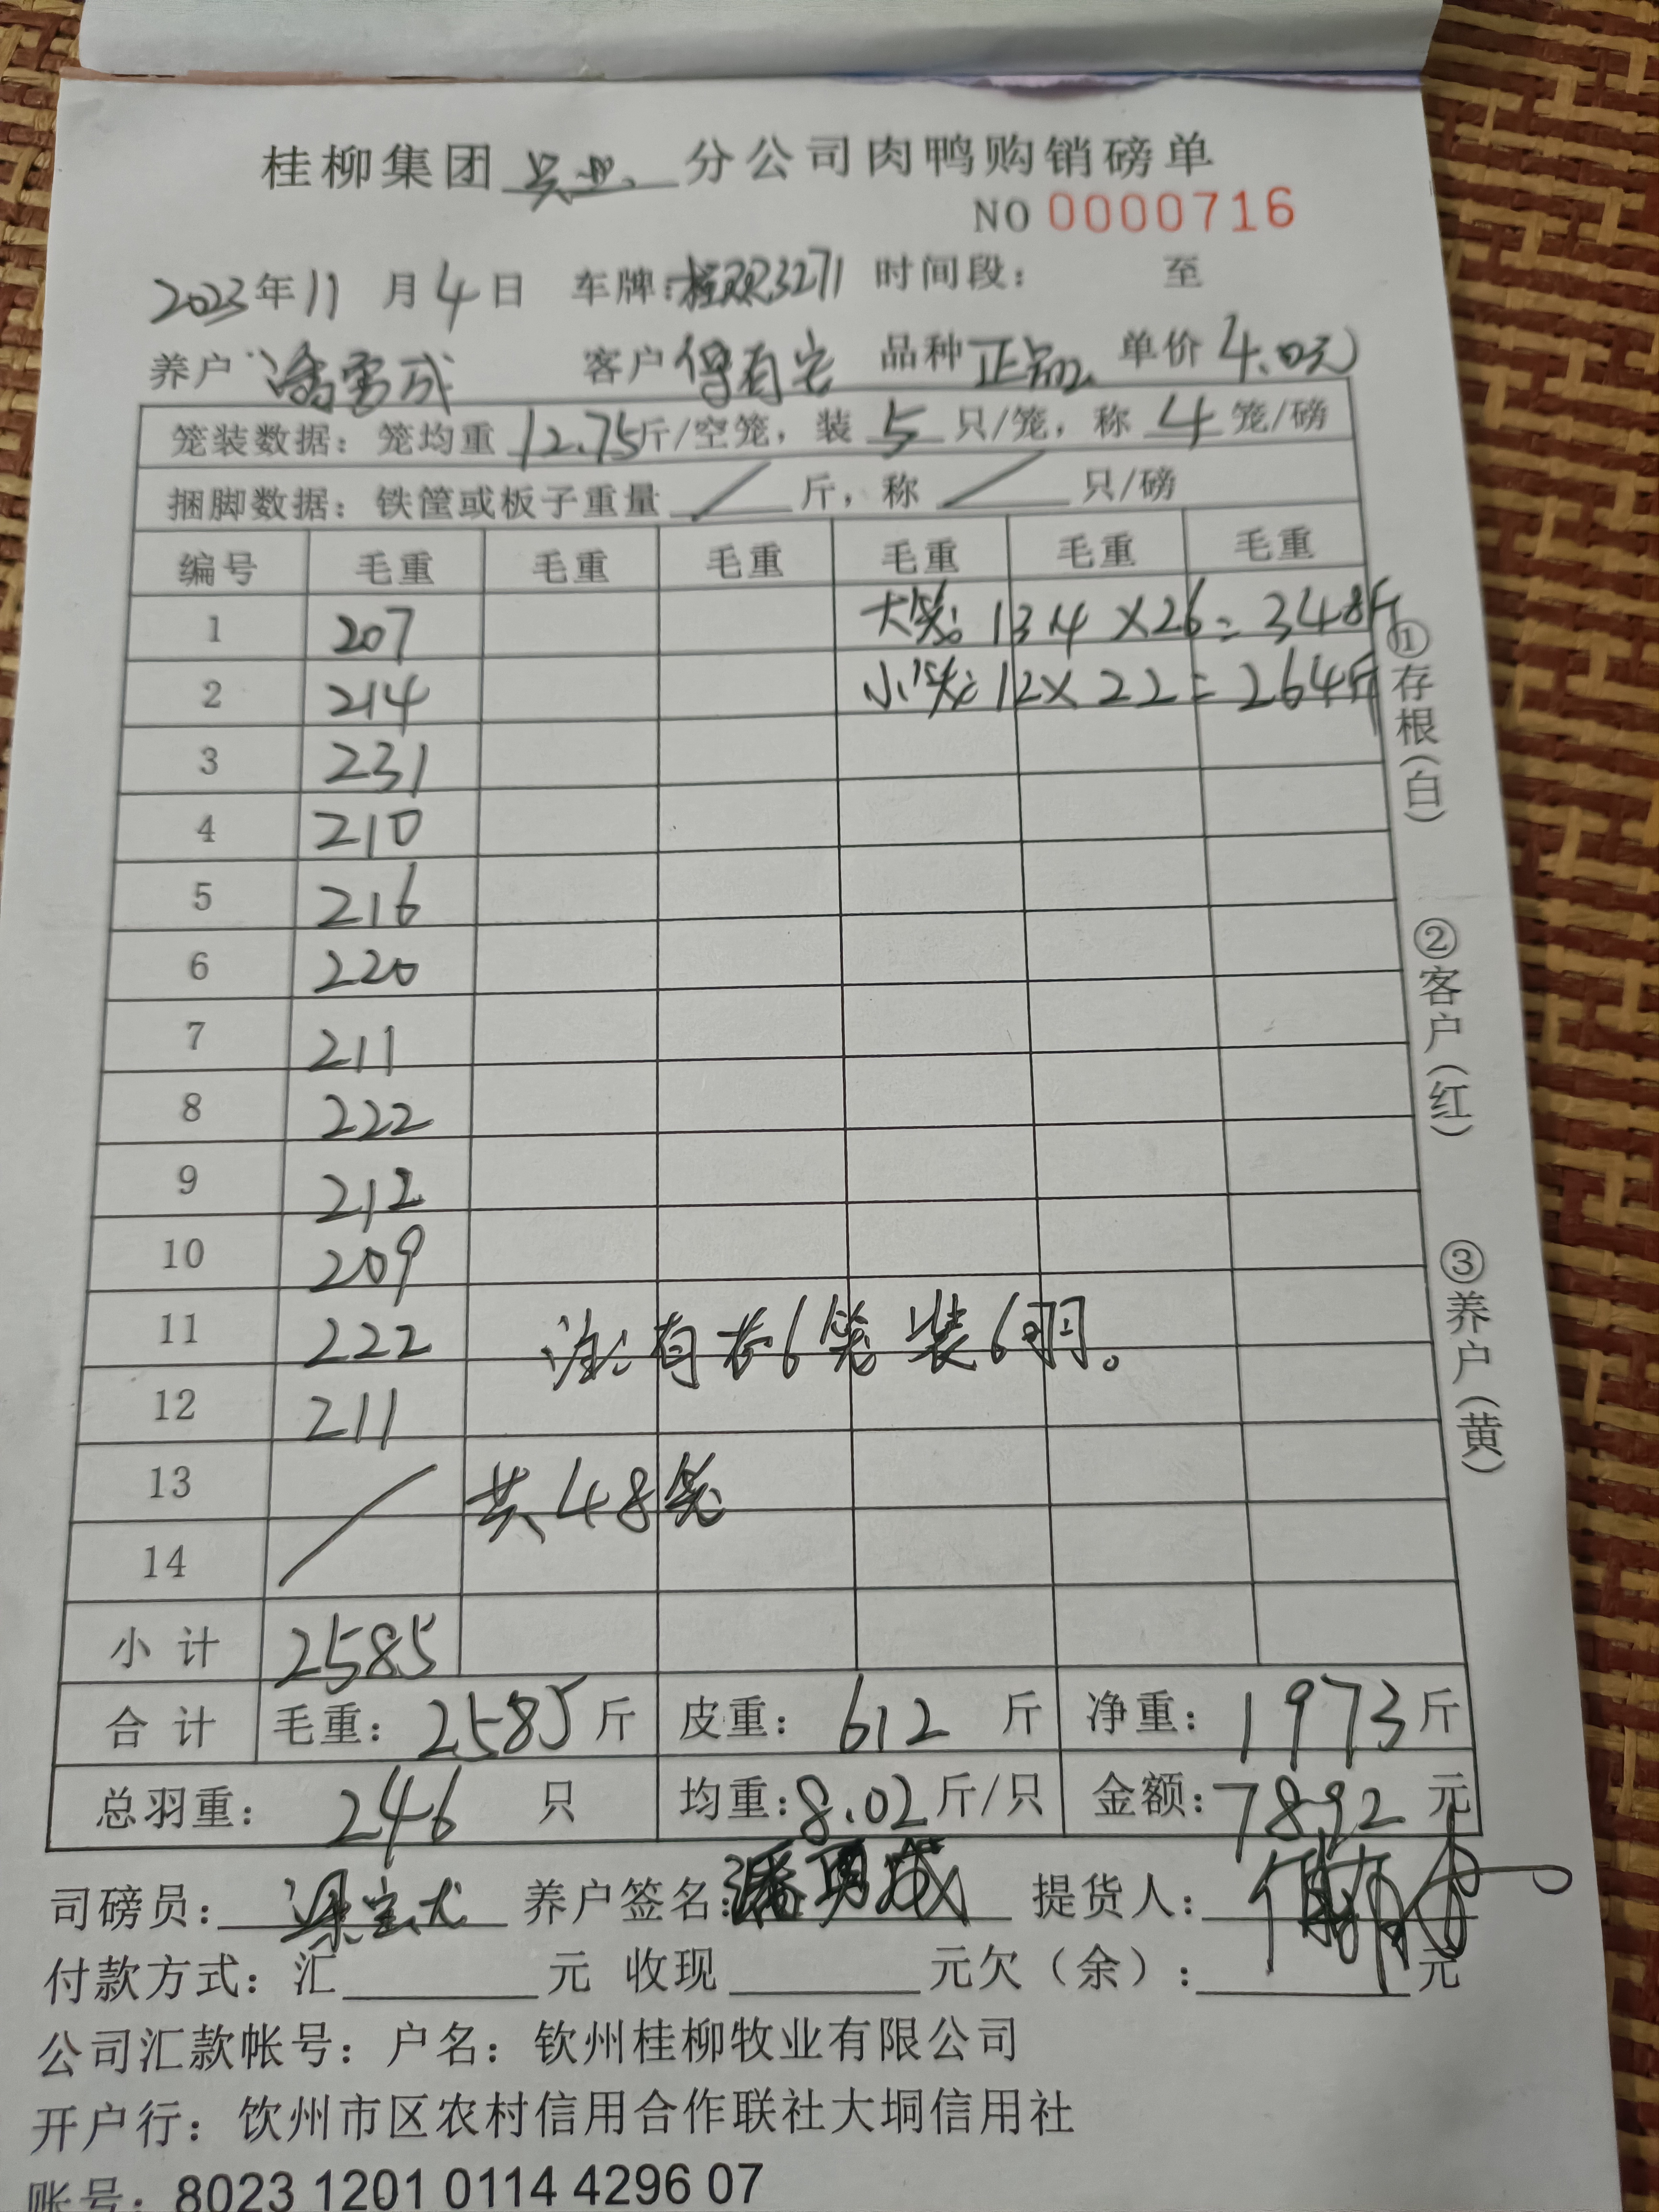 桂柳集团兴业分公司肉鸭购销磅单
NO 0000716
2023年11月4日 车牌:桂R3271 时间段: 至
养户 潘勇成 客户 有 品种 正品 单价 4.0元
笼装数据:笼均重 12.75斤/空笼,装 5 只/笼,称 4 笼/磅
捆脚数据:铁筐或板子重量 / 斤,称 / 只/磅
编号 毛重 毛重 毛重 毛重 毛重 毛重
1 207 大笼: 13.4×26=348斤
2 214 小笼: 12×22=264斤
3 231
4 210
5 216
6 220
7 211
8 222
9 212
10 209
11 222 注:有 6笼装6羽。
12 211
13 / 共48笼
14
小计 2585
合计 毛重:2585斤 皮重:612斤 净重:1973斤
总羽重:246只 均重:8.02斤/只 金额:7892元
司磅员:梁 养户签名:潘勇成 提货人:
付款方式:汇 元 收现 元欠(余): 元
公司汇款帐号:户名:钦州桂柳牧业有限公司
开户行:饮州市区农村信用合作联社大垌信用社
账号:8023 1201 0114 4296 07
①存根(白)
②客户(红)
③养户(黄)